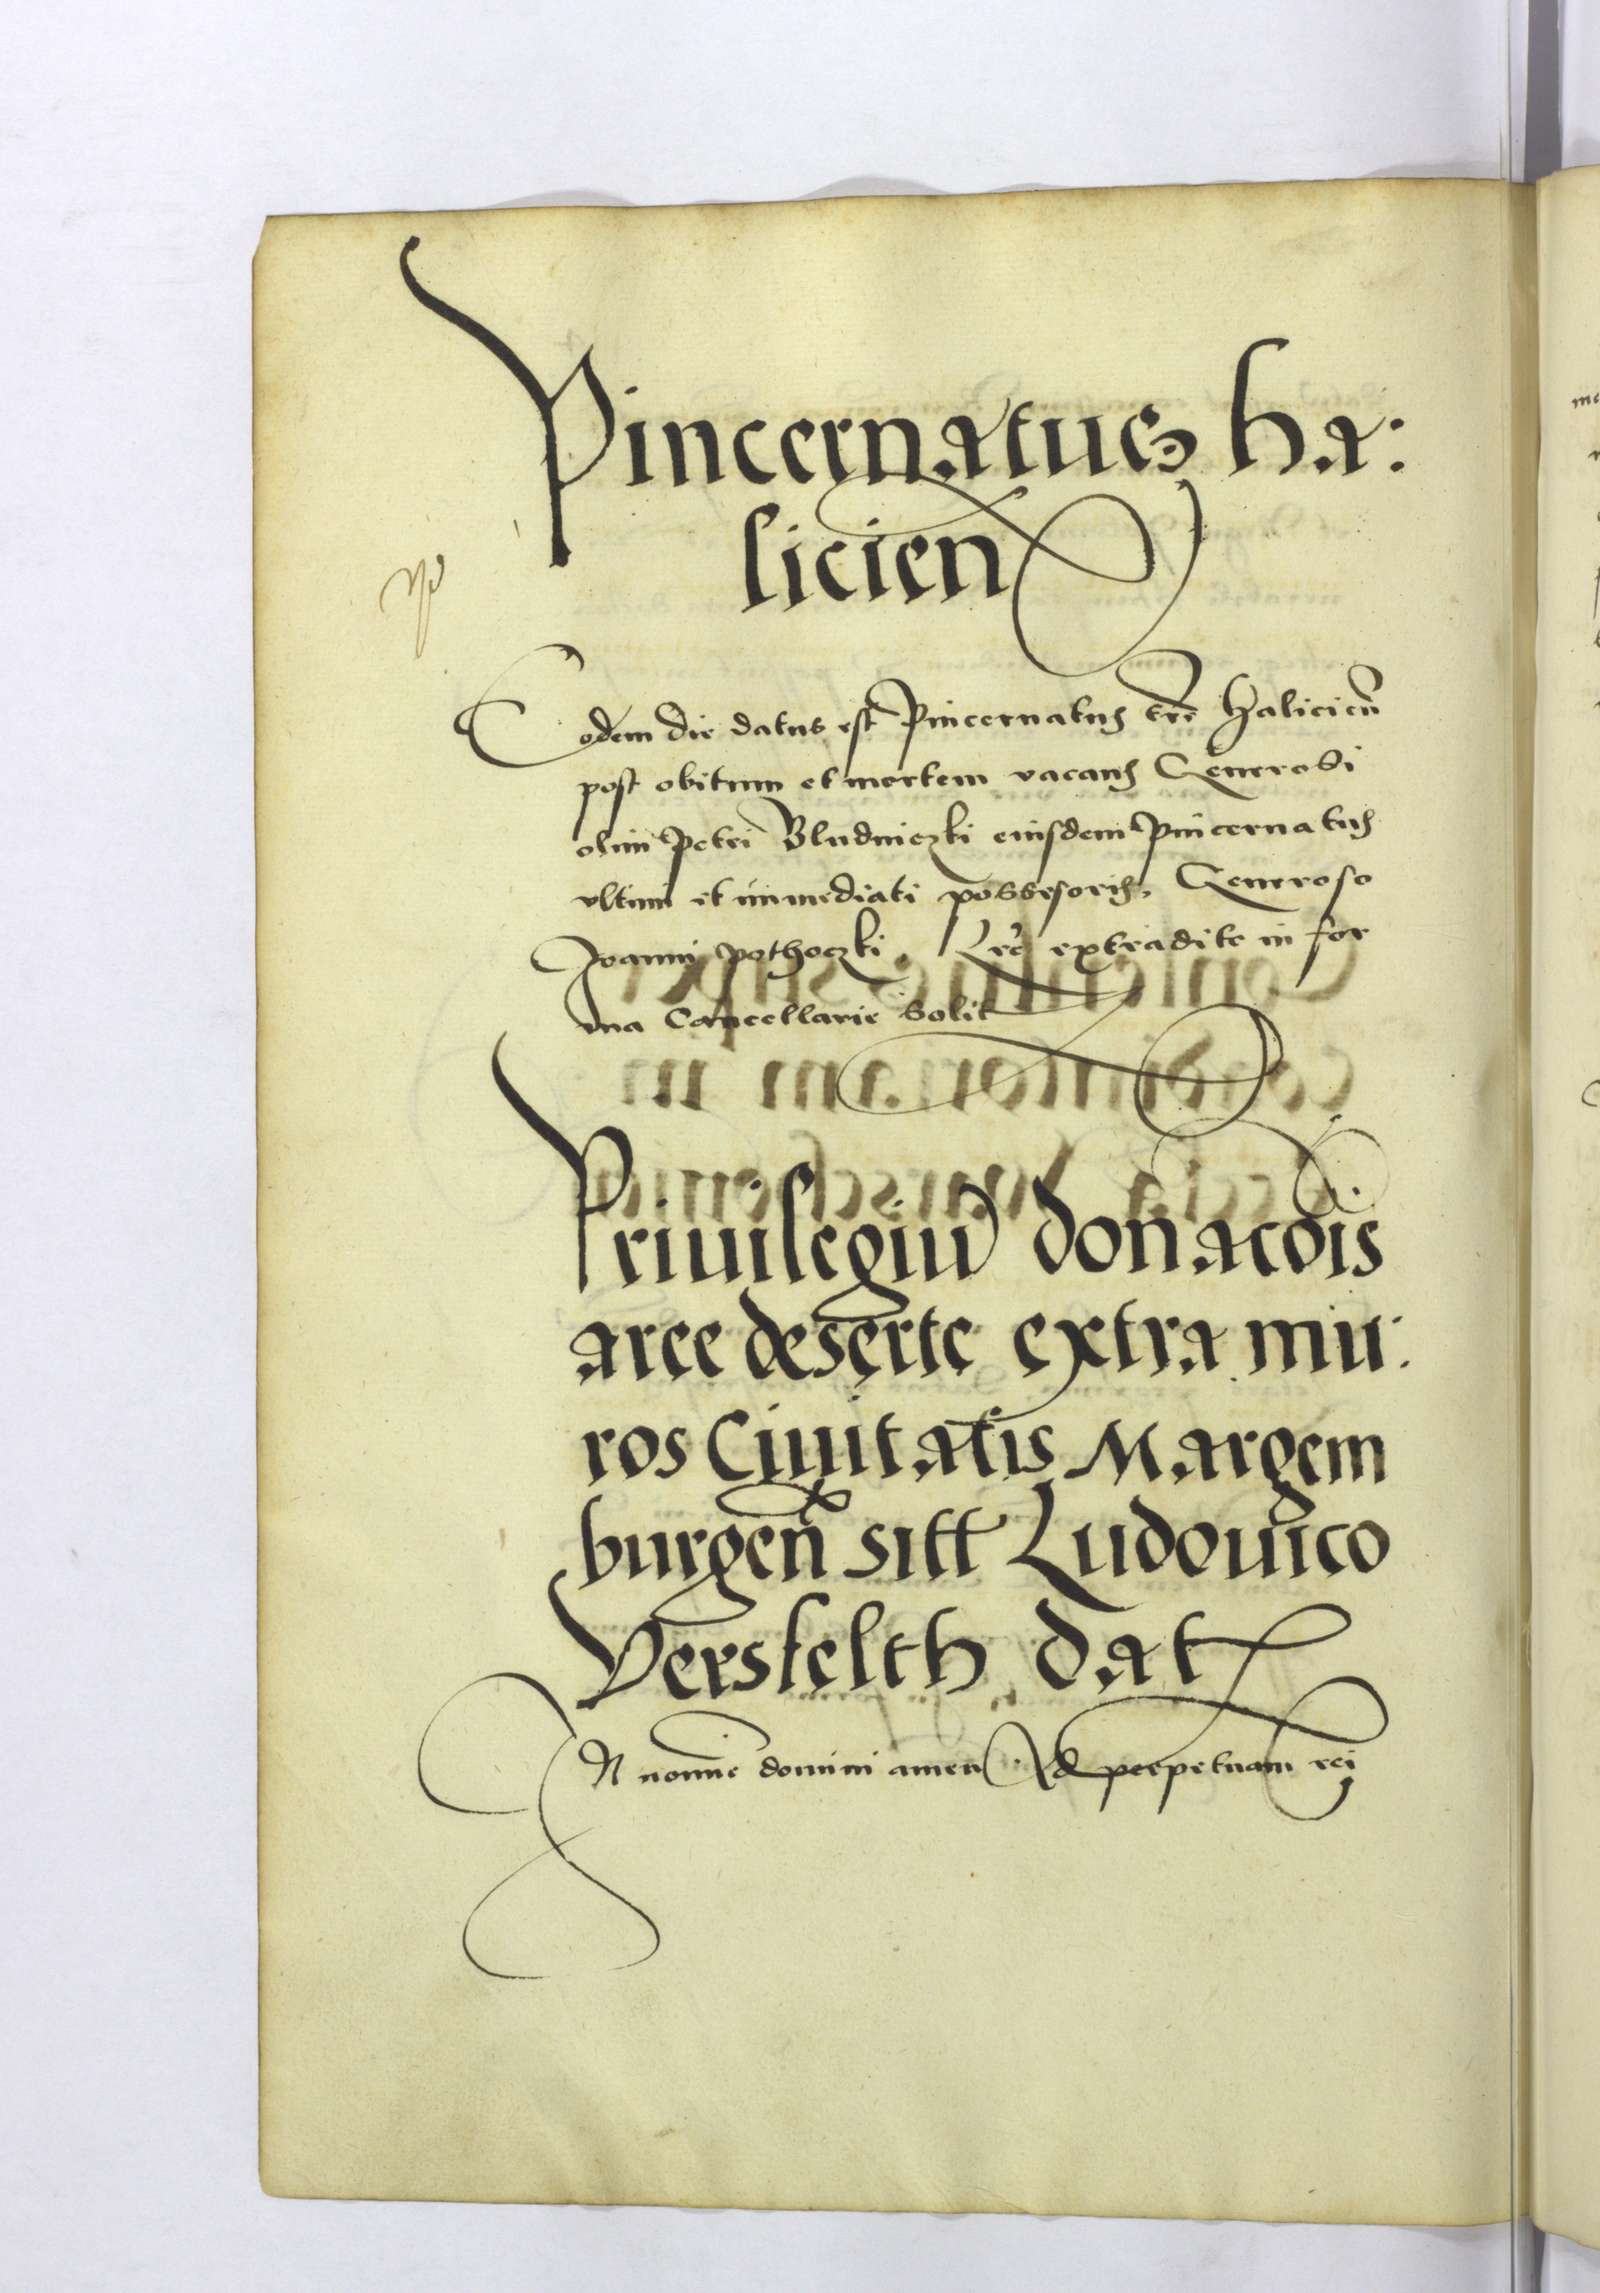 Pincernatus ha:
licien
Eodem die datus est Pincernatus tr̃e Halicien̄
post obitum et mortem vacans Generosi
olim Petri Bludniczki eiusdem Pincernatus
vltimi et immediati possesoris, Generoso
Joanni Pothoczki. Lr̃e extradite in for
ma Cancellarie Solit
Priuilegiū donacōis
arce deserte extra mu:
ros Ciuitatis Margem
burgen̄ sitt Ludouico
Versfelth dat
IN nomīe domini amen Ad perpetuam rei